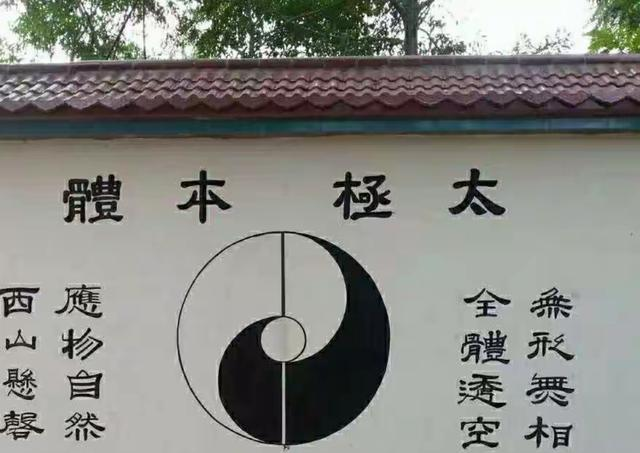 太極本體
無形無相
全體透空
應物自然
西山懸磬